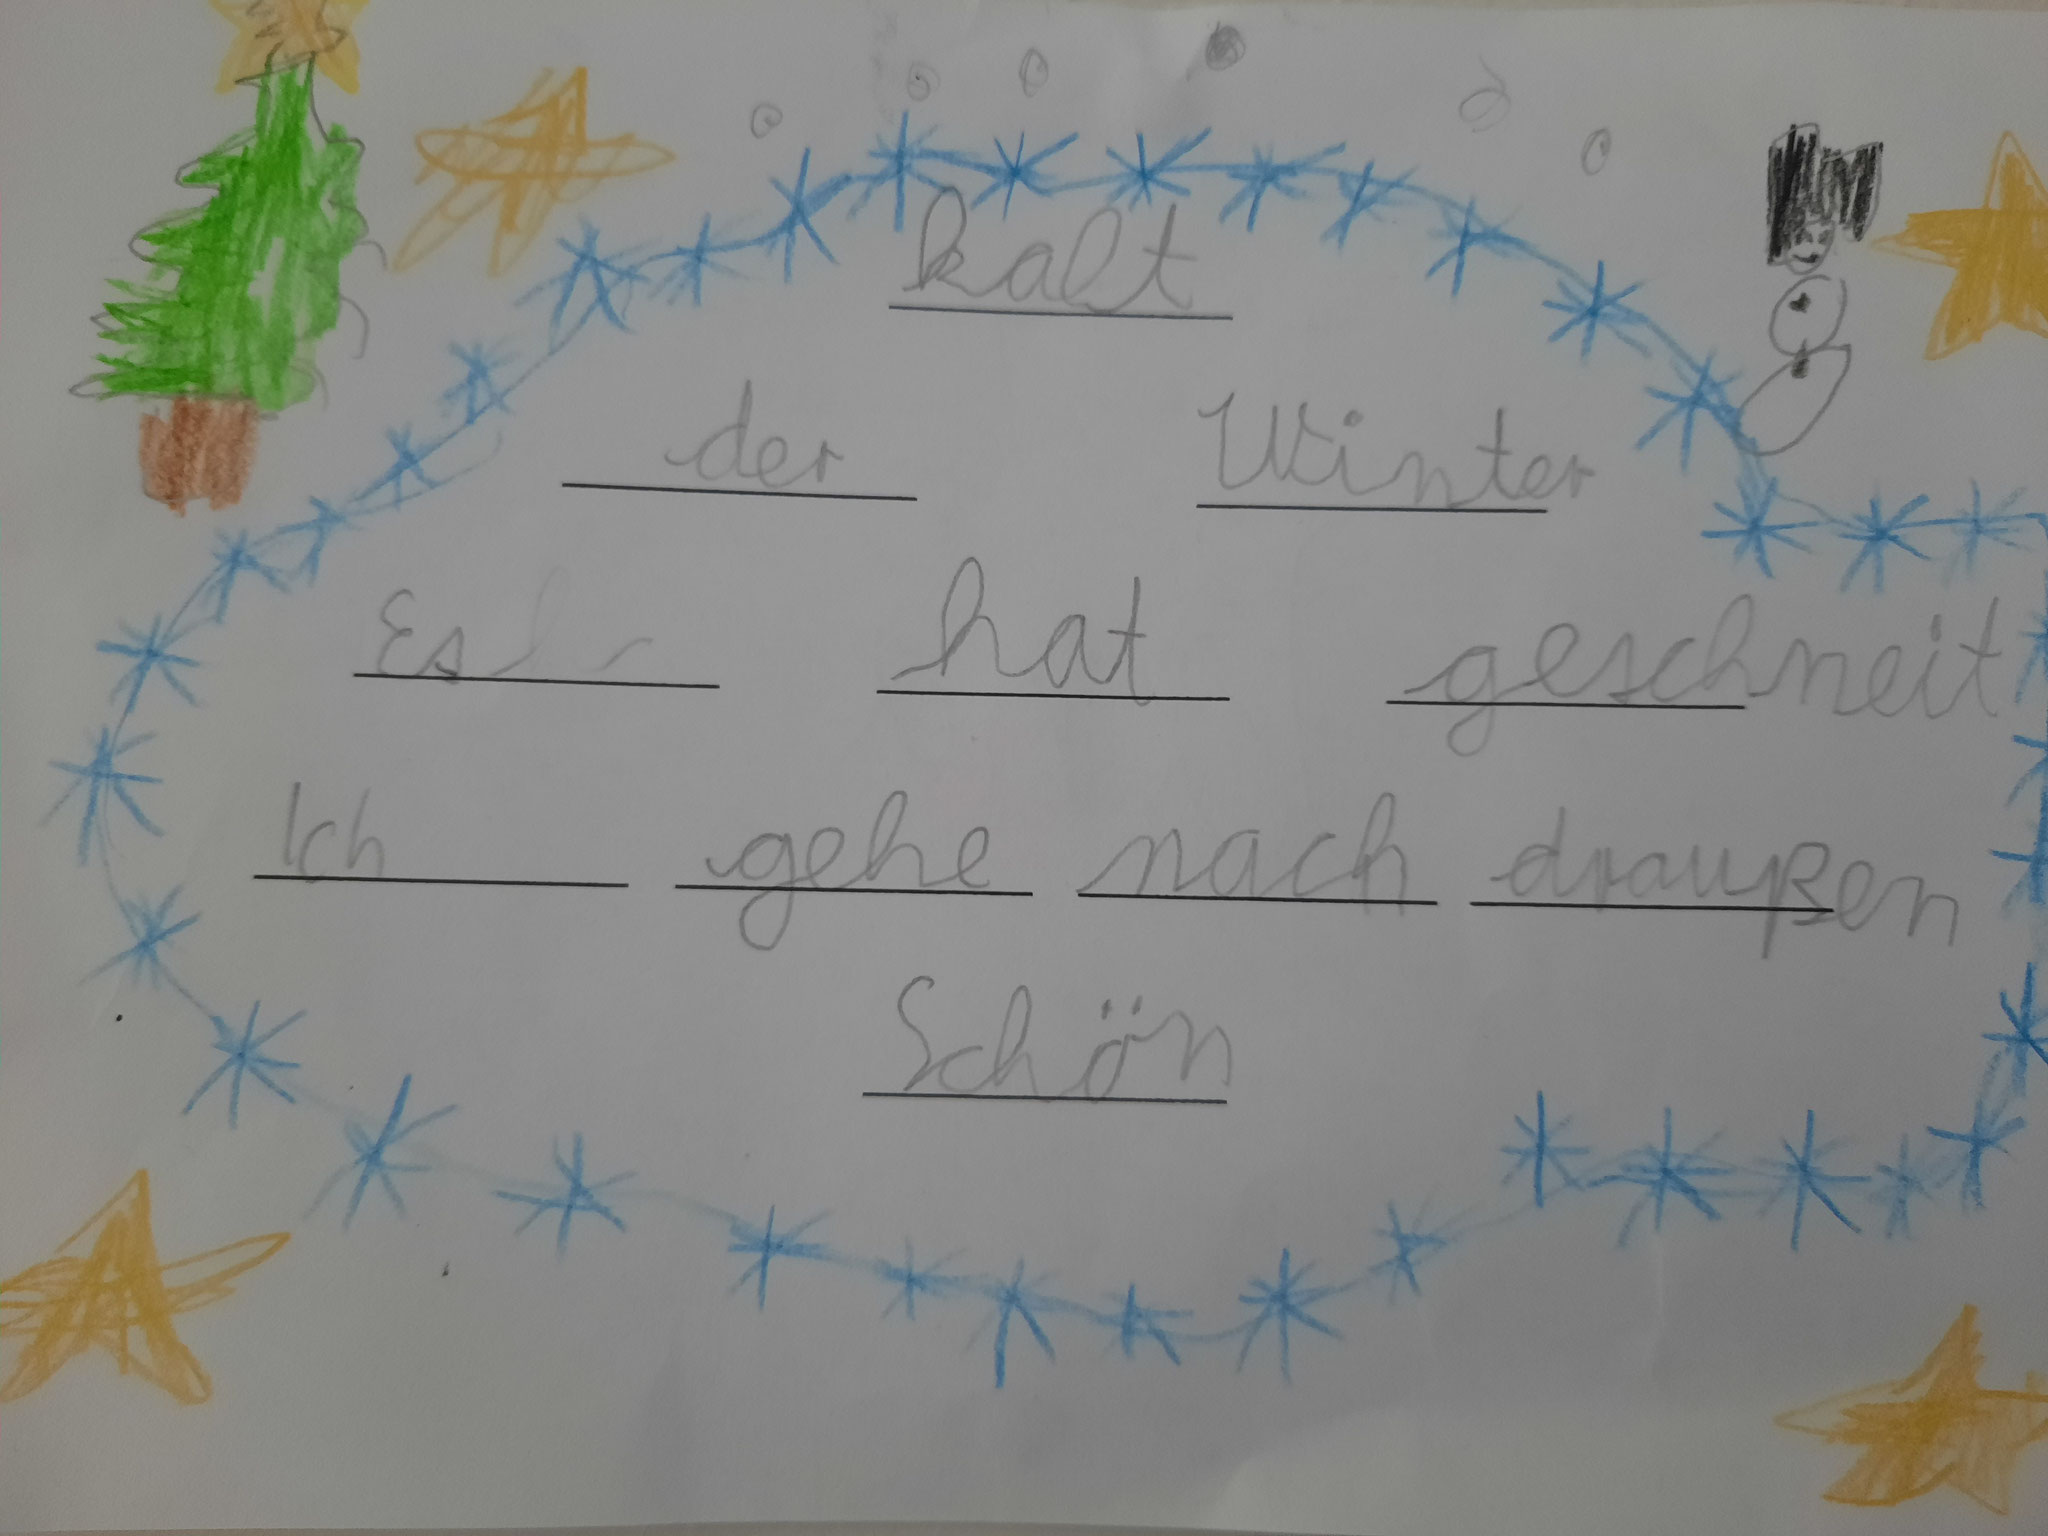 kalt
der Winter
Es hat geschneit
Ich gehe nach draußen
Schön